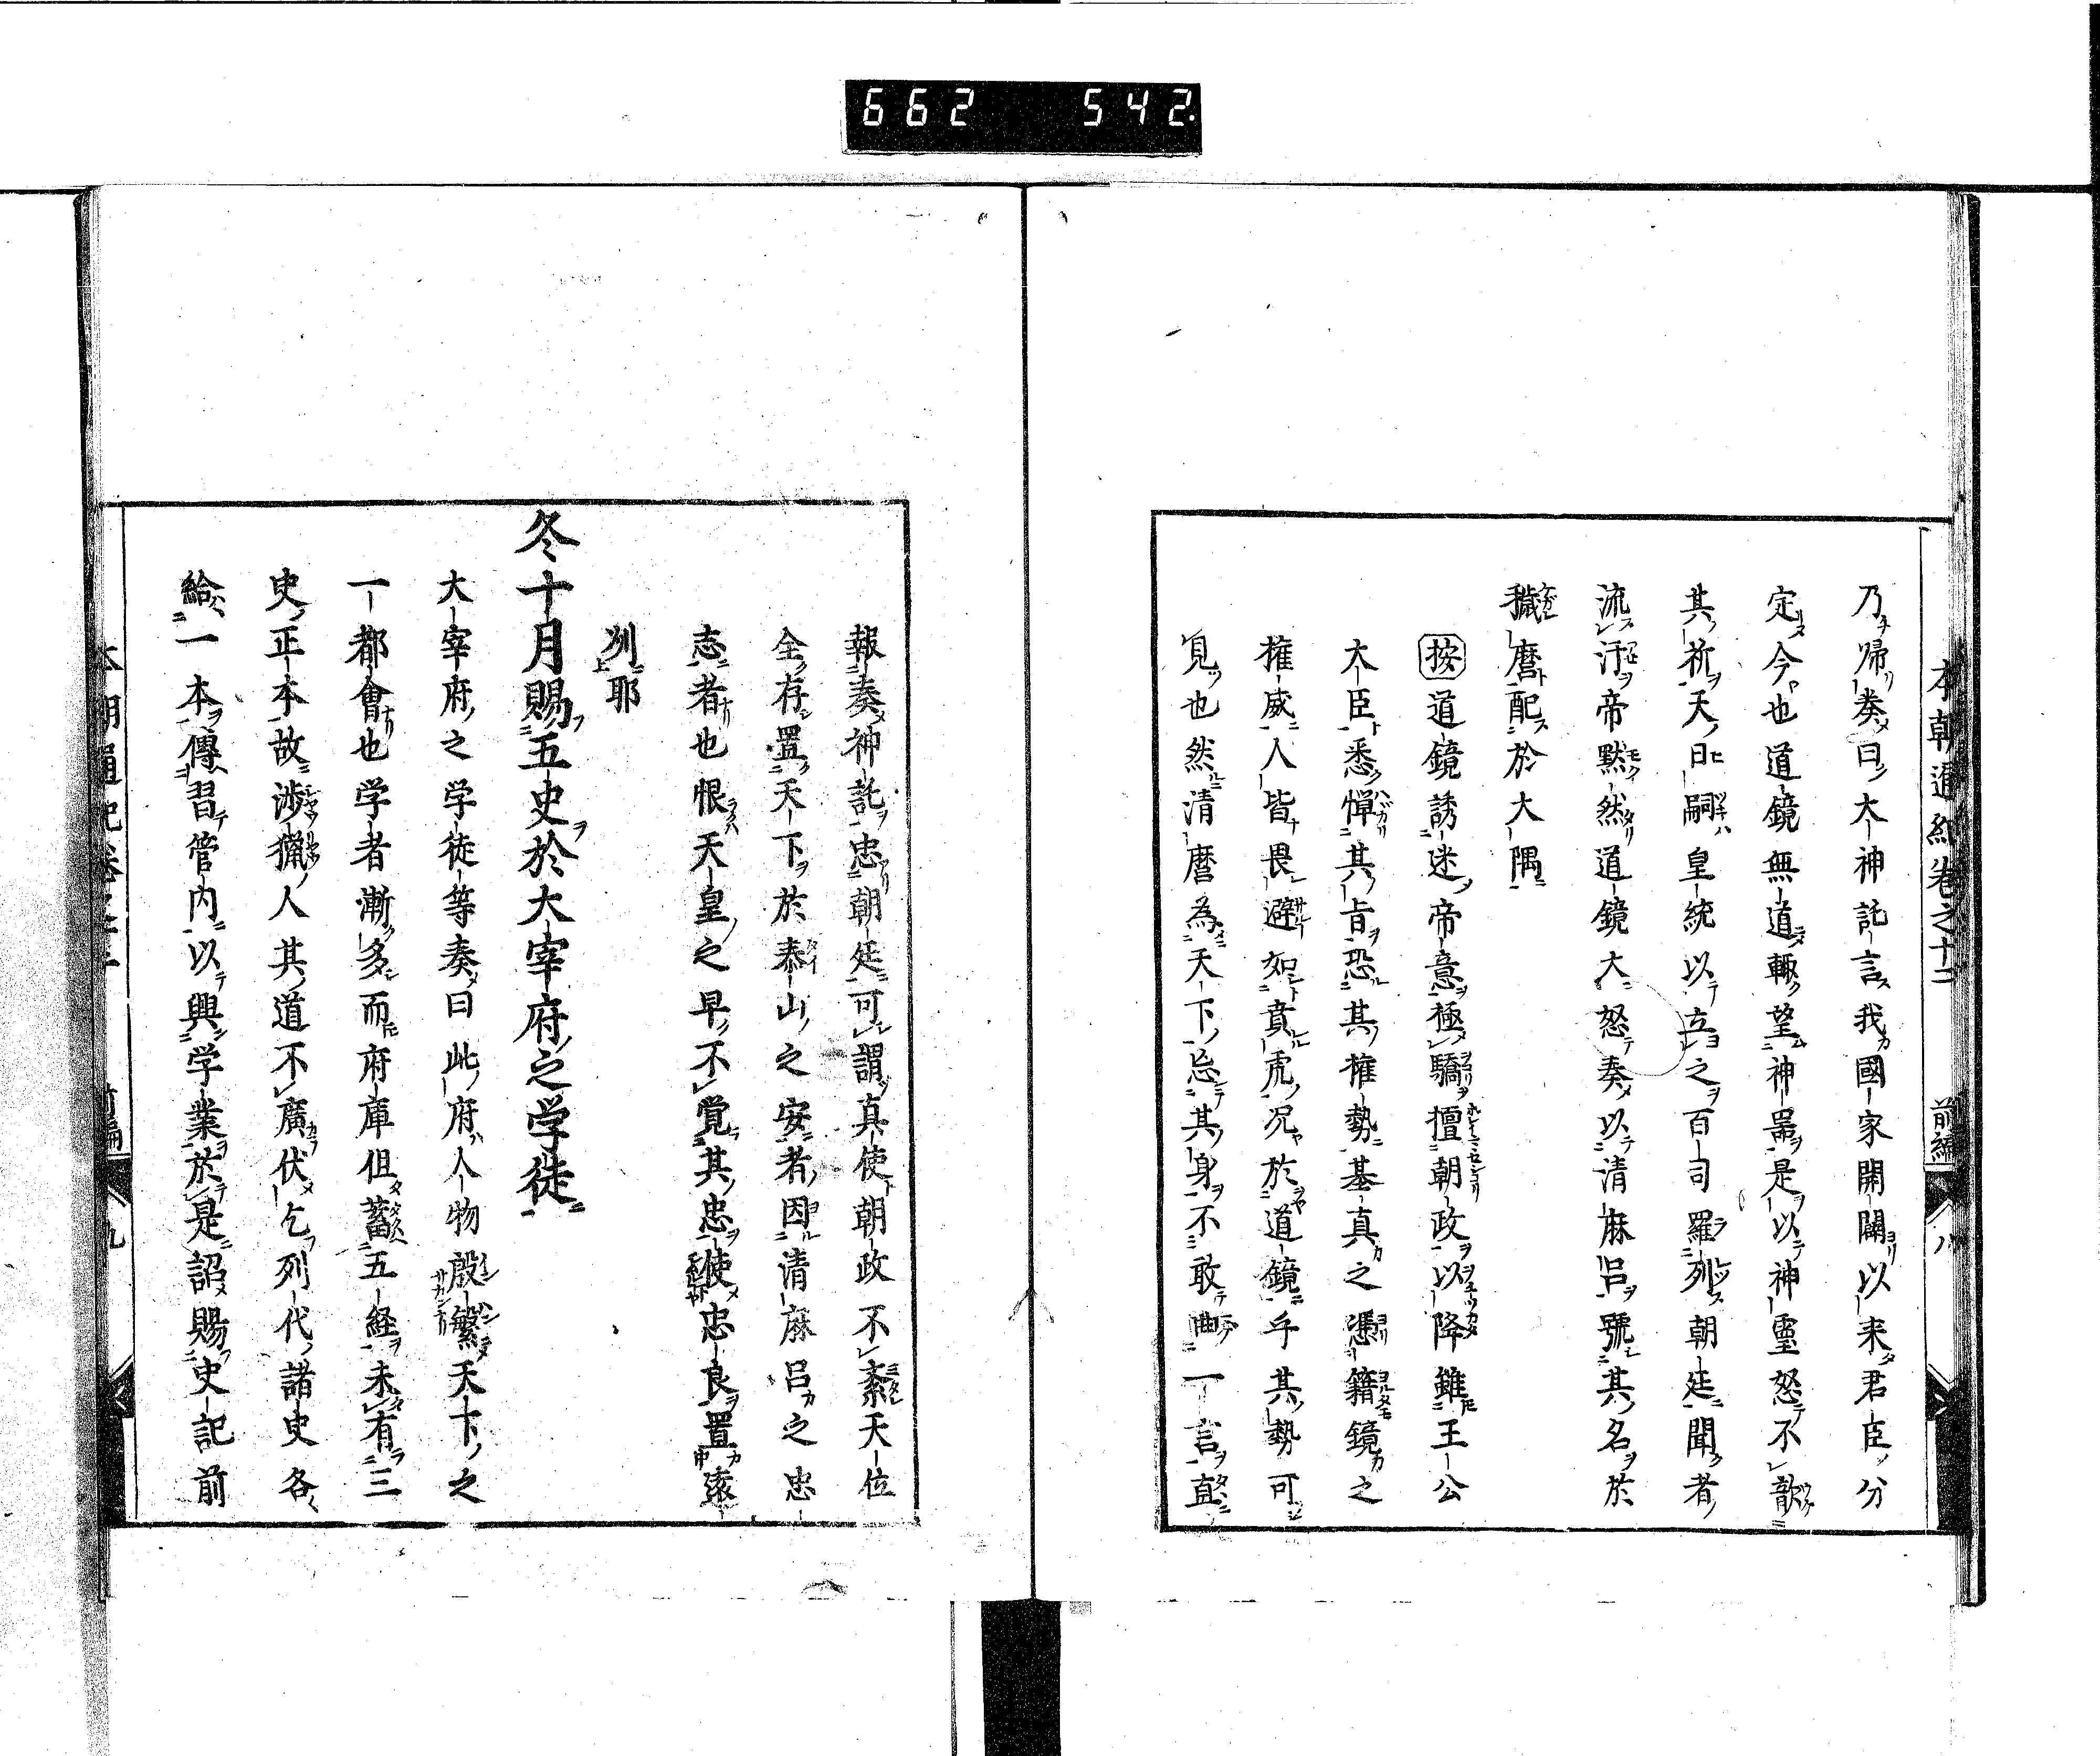 662 542.
本朝通紀卷之十二 前編 八
乃帰奏曰大神託言我國家開闢以来君臣分
定今也道鏡無道輙望神噐是以神霊怒不歆
其祈天日嗣皇統以立之百司羅列朝廷聞者
流汗帝黙然道鏡大怒奏以清麻呂號其名於
穢麿配於大隅
按道鏡誘迷帝意極驕擅朝政以降雖王公
大臣悉憚其旨恐其権勢基真之憑籍鏡之
権威人皆畏避如賁虎况於道鏡乎其勢可
見也然清麿為天下忘其身不敢曲一言直
報奏神託忠朝廷可謂真使朝政不紊天位
全存置天下於泰山之安者因清麻呂之忠
志者也恨天皇之早不覚其忠使忠良置遠
列耶
冬十月賜五史於大宰府之学徒
大宰府之学徒等奏曰此府人物殷繁天下之
一都會也学者漸多而府庫但蓄五経未有三
史正本故渉獵人其道不廣伏乞列代諸史各
給一本傳習管内以興学業於是詔賜史記前
前編 九